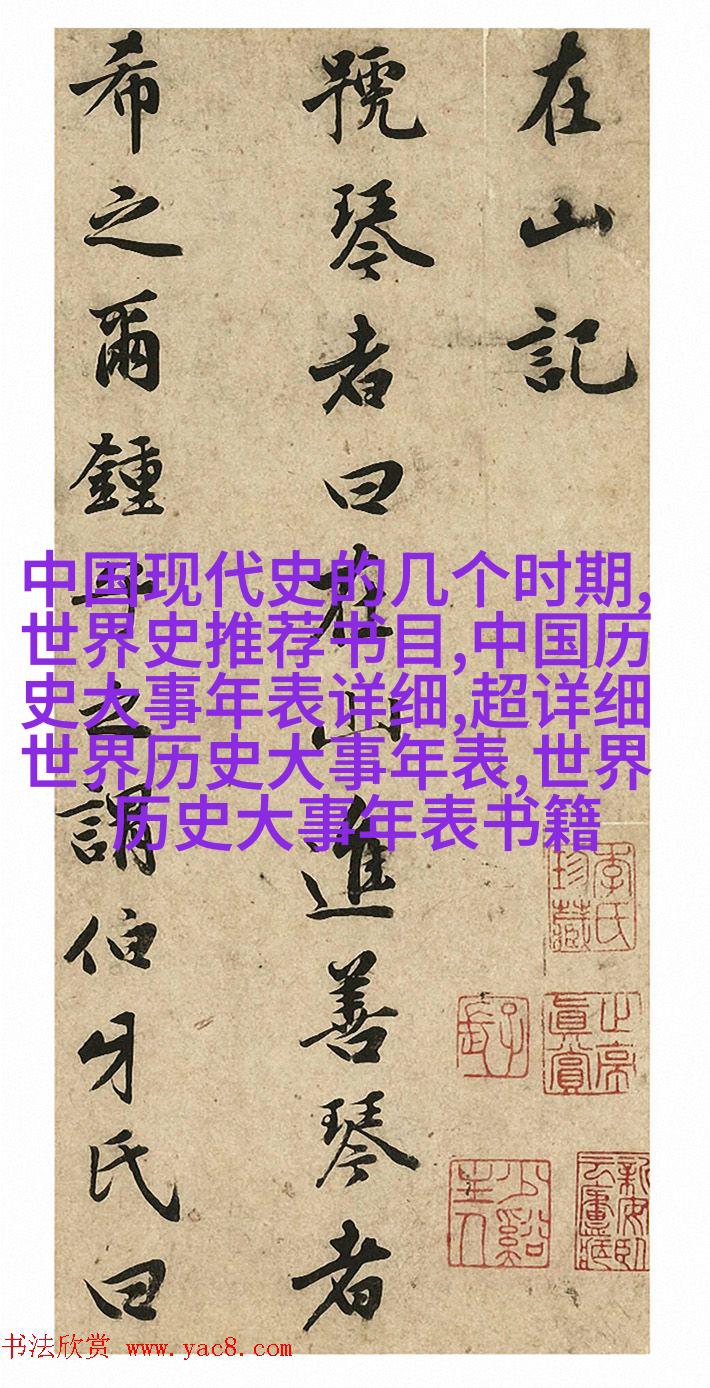 在山記
號琴者曰在山進善琴者
希之爾鍾之謂伯牙氏曰
中国现代史的几个时期,
世界史推荐书目,中国历
史大事年表详细,超详细
世界历史大事年表,世界
历史大事年表书籍
季氏珍藏
真賞
少谿主人
书法欣赏 www.yac8.com